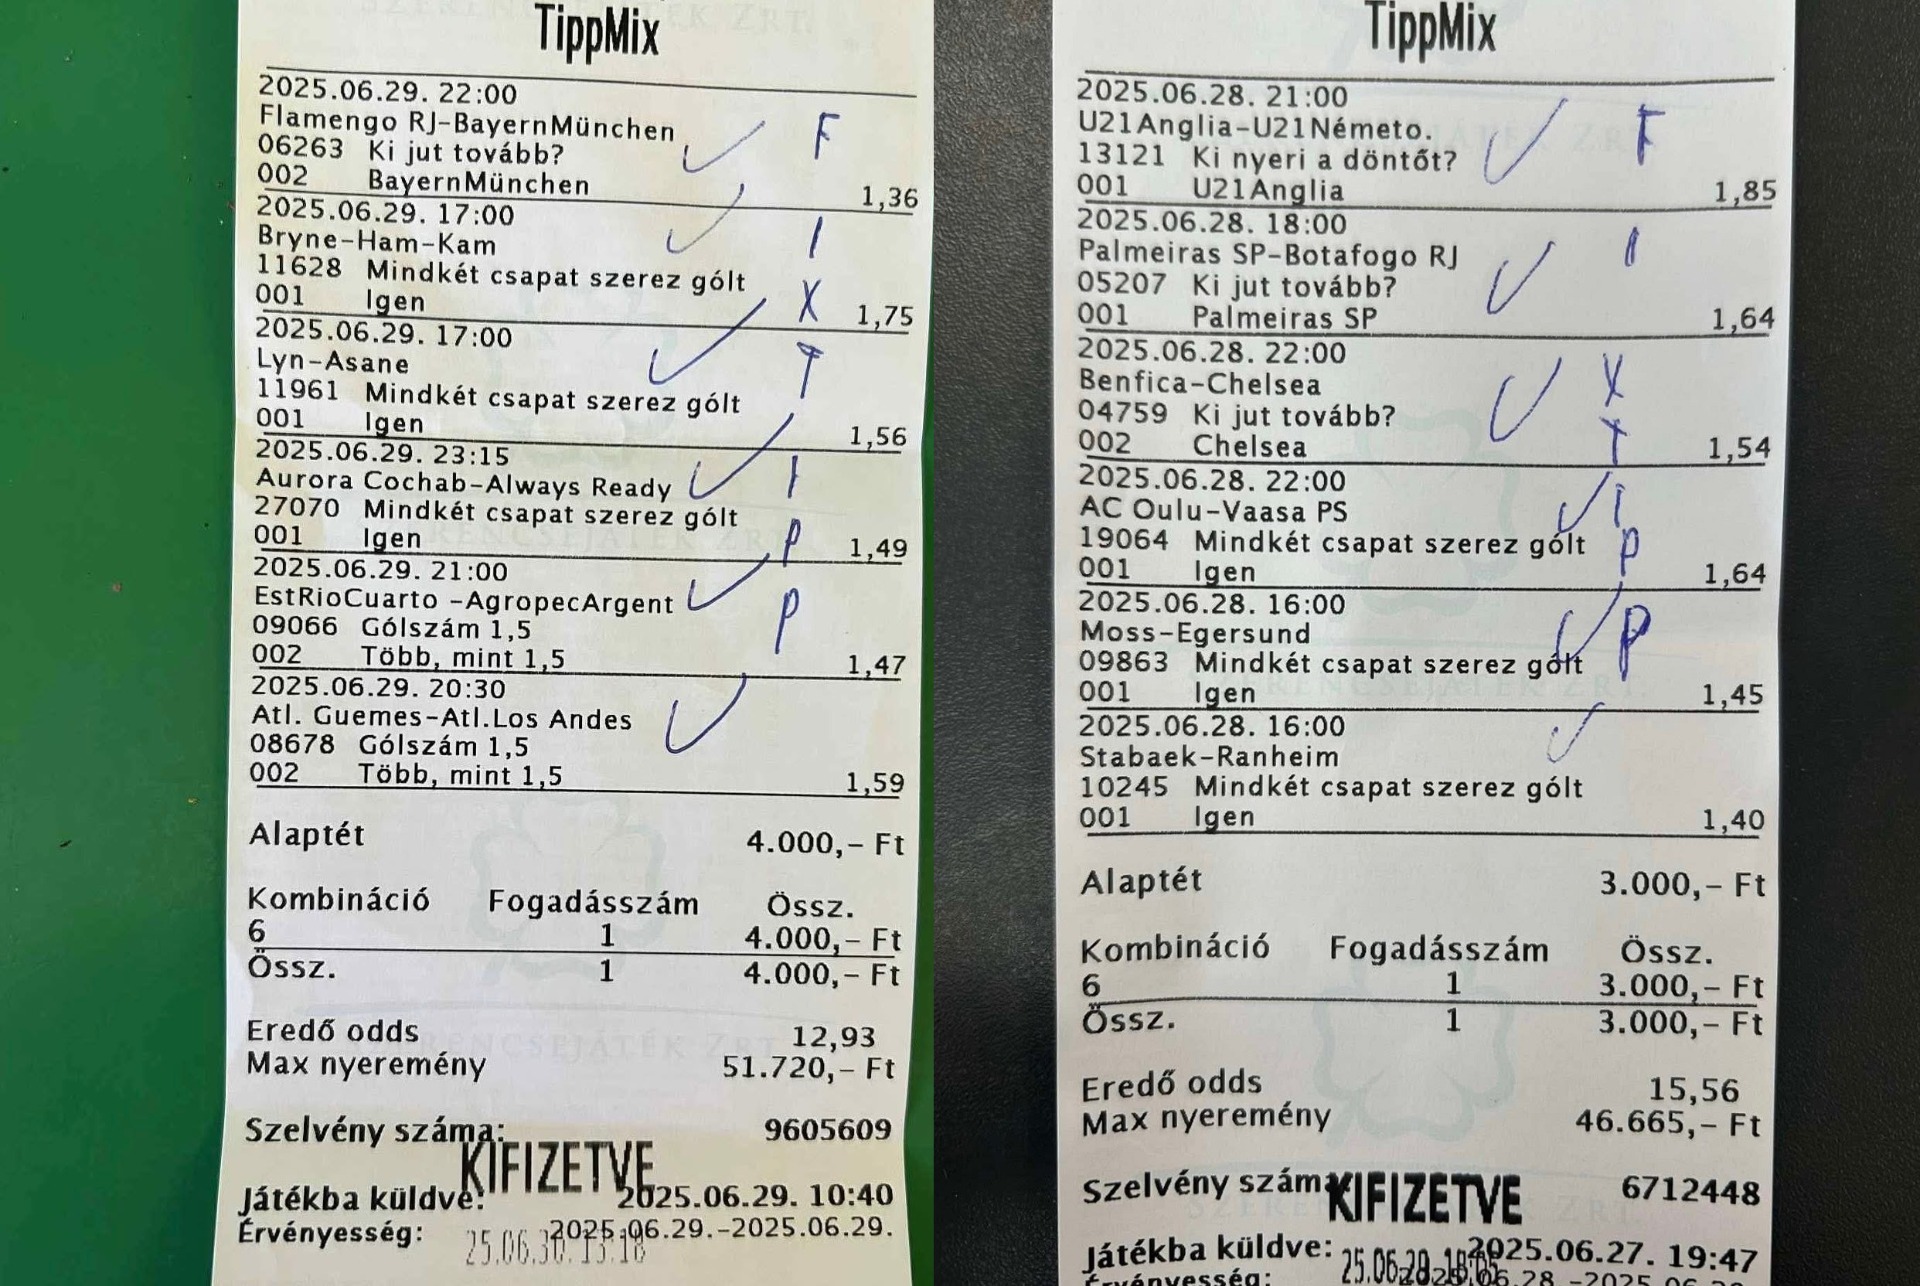 TippMix
2025.06.29. 22:00
Flamengo RJ-BayernMünchen
06263 Ki jut tovább?
002 BayernMünchen 1,36
2025.06.29. 17:00
Bryne-Ham-Kam
11628 Mindkét csapat szerez gólt
001 Igen 1,75
2025.06.29. 17:00
Lyn-Asane
11961 Mindkét csapat szerez gólt
001 Igen 1,56
2025.06.29. 23:15
Aurora Cochab-Always Ready
27070 Mindkét csapat szerez gólt
001 Igen 1,49
2025.06.29. 21:00
EstRioCuarto -AgropecArgent
09066 Gólszám 1,5
002 Több, mint 1,5 1,47
2025.06.29. 20:30
Atl. Guemes-Atl.Los Andes
08678 Gólszám 1,5
002 Több, mint 1,5 1,59
F
I
X
T
I
P
P
Alaptét 4.000,- Ft
Kombináció Fogadásszám Össz.
6 1 4.000,- Ft
Össz. 1 4.000,- Ft
Eredő odds 12,93
Max nyeremény 51.720,- Ft
Szelvény száma: 9605609
KIFIZETVE
Játékba küldve: 2025.06.29. 10:40
Érvényesség: 2025.06.29.-2025.06.29.
25.06.30. 13:18
TippMix
2025.06.28. 21:00
U21Anglia-U21Németo.
13121 Ki nyeri a döntőt?
001 U21Anglia 1,85
2025.06.28. 18:00
Palmeiras SP-Botafogo RJ
05207 Ki jut tovább?
001 Palmeiras SP 1,64
2025.06.28. 22:00
Benfica-Chelsea
04759 Ki jut tovább?
002 Chelsea 1,54
2025.06.28. 22:00
AC Oulu-Vaasa PS
19064 Mindkét csapat szerez gólt
001 Igen 1,64
2025.06.28. 16:00
Moss-Egersund
09863 Mindkét csapat szerez gólt
001 Igen 1,45
2025.06.28. 16:00
Stabaek-Ranheim
10245 Mindkét csapat szerez gólt
001 Igen 1,40
F
I
X
T
I
P
P
Alaptét 3.000,- Ft
Kombináció Fogadásszám Össz.
6 1 3.000,- Ft
Össz. 1 3.000,- Ft
Eredő odds 15,56
Max nyeremény 46.665,- Ft
Szelvény száma 6712448
KIFIZETVE
Játékba küldve: 2025.06.27. 19:47
Érvényesség: